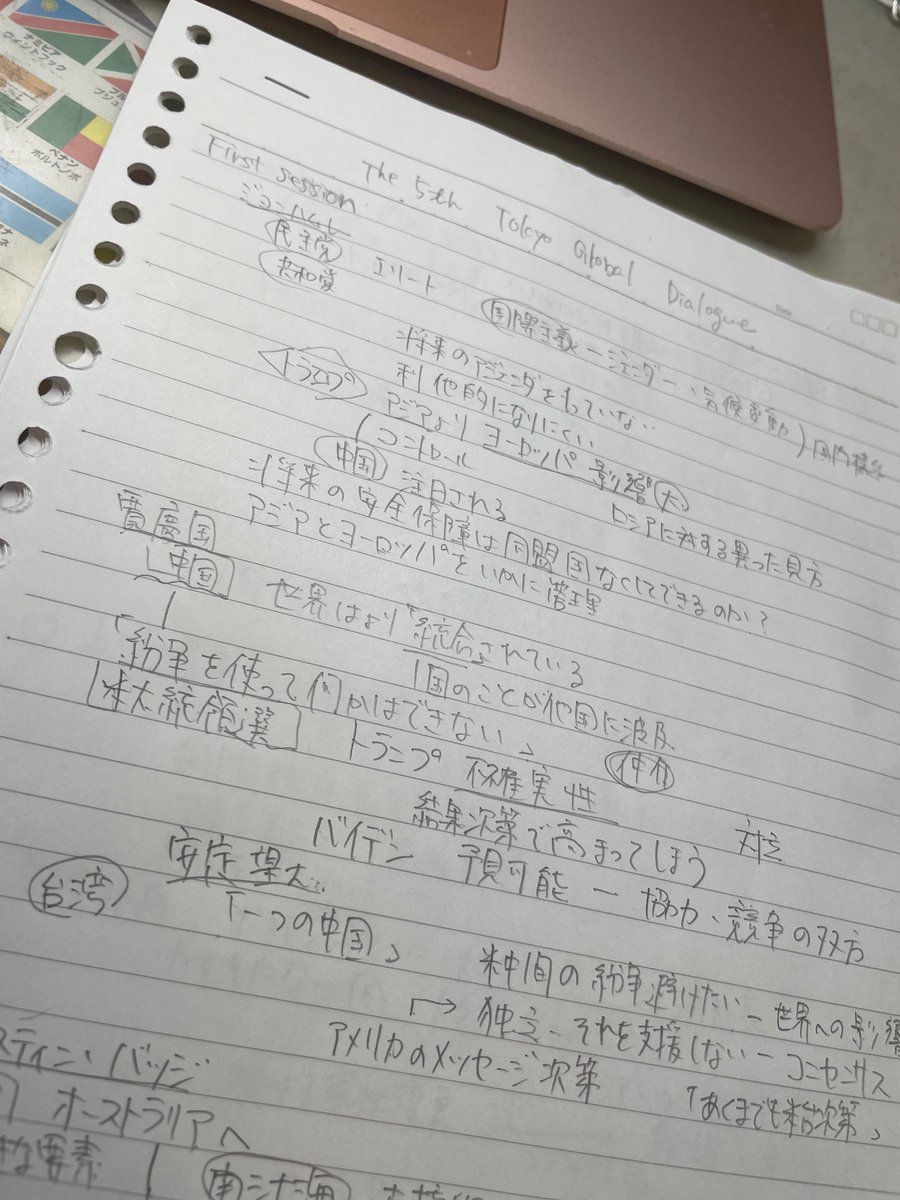 ナミビア
ウィントフック
ベナン
ポルトノボ
The 5th Tokyo Global Dialogue
First session
民主党
共和党
エリート
国際主義 ー ジェンダー、気候変動
将来のアジェンダをもっていない
利他的になりにくい
トランプ
アジアより ヨーロッパ 影響(大)
コントロール
ロシアに対する異った見方
中国 注目される
将来の安全保障は同盟国なくしてできるのか?
アジアとヨーロッパをいかに管理
賈慶国
中国
世界はより「統合」されている
1国のことが他国に波及
「紛争を使って何かはできない」
仲介
米大統領選
トランプ 不確実性
結果次第で高まってしまう
対立
バイデン 予見可能 ー 協力、競争の双方
安定望む
台湾
「一つの中国」
米中間の紛争避けたい ー 世界への影響
→ 独立、それを支援しない ー コンセンサス
アメリカのメッセージ次第
「あくまでも米台次第」
スティン・バッジ
オーストラリアへ
な要素
南シナ海